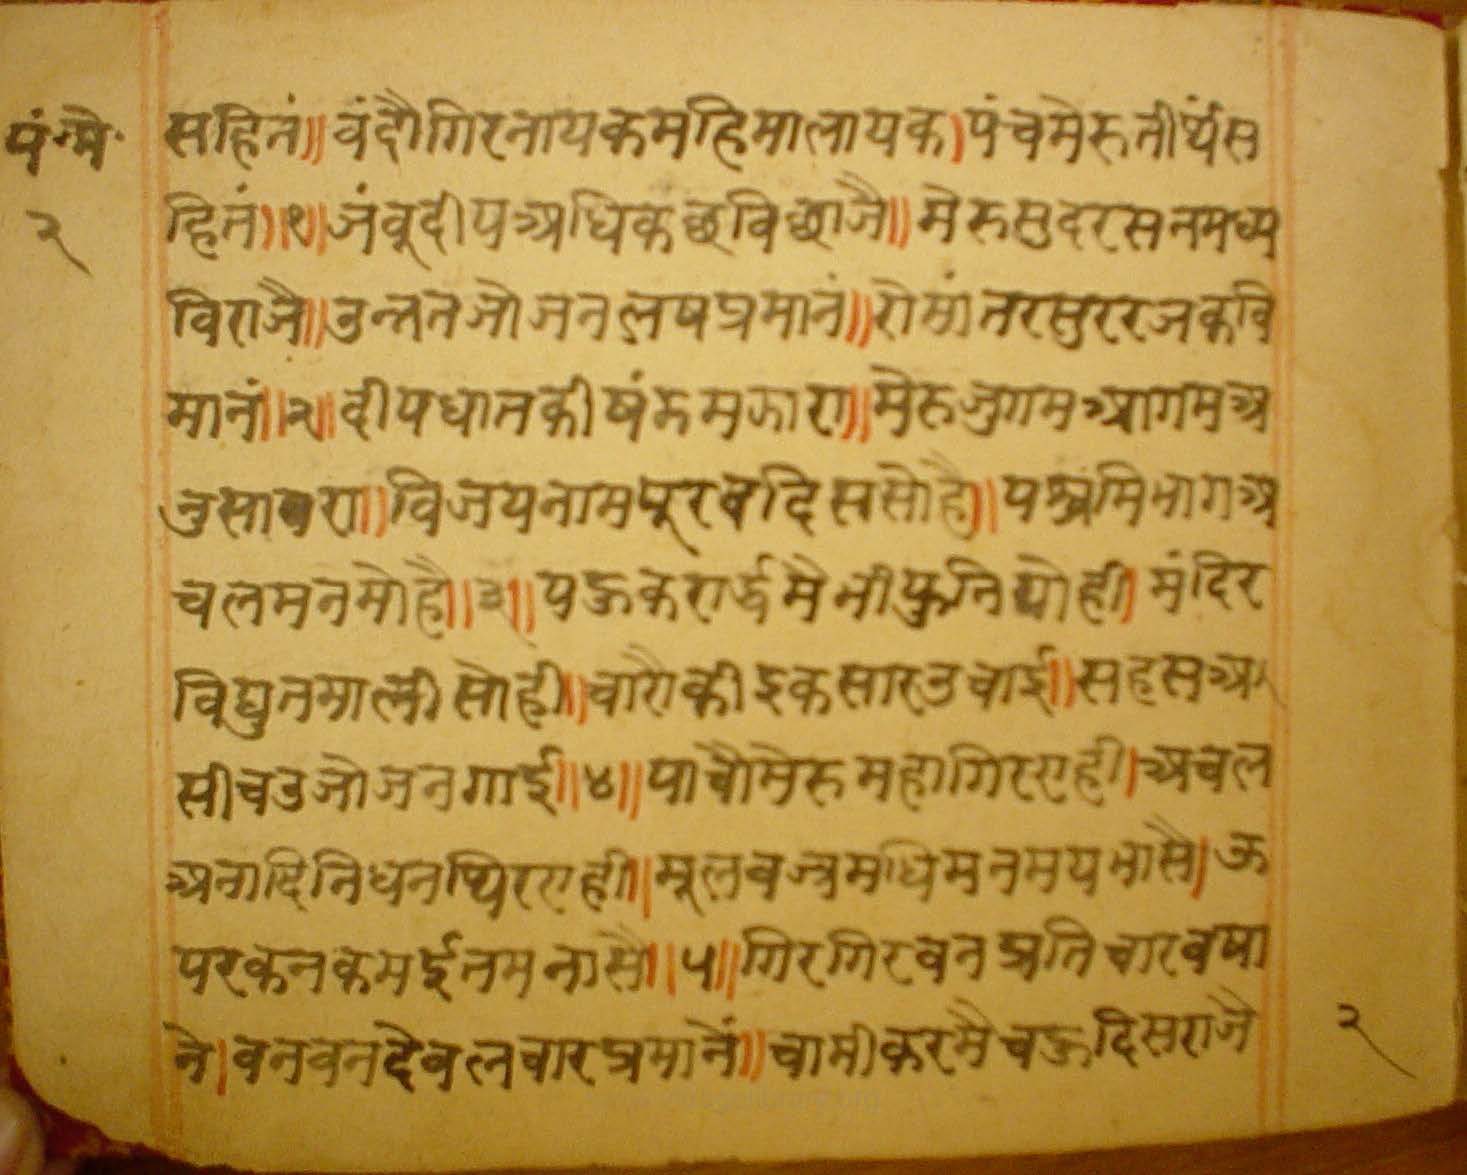 पं॰मे॰
२
सहितं॥ वंदौगिरनायकमहिमालायक।पंचमेरुतीर्थस
हितं॥१॥जंवूदीपअधिकछविछाजै॥मेरुसुदरसनमध्य
विराजै॥उन्ततजोजनलषप्रमानं॥रोमांतरसुररजकवि
मानं॥२॥दीपधातकीषंडमझारा॥मेरुजुगमआगमअ
नुसारा॥विजयनामपूरवदिससोहै॥पश्चिमभागअ
चलमनमोहै॥३॥पऊकरार्द्धमेभीफुनियोही।मंदिर
विद्युतमालीसोही॥चारौकीइकसारउचाई॥सहसअ
सीचउजोजनगाई॥४॥पाचौमेरुमहागिरएही।अचल
अनादिनिधनथिरएही॥मूलवज्रमधिमनमयभासै।ऊ
परकनकमईतमनासै॥५॥गिरगिरवनप्रतिचारवषा
ने।वनवनदेवलचारप्रमानें॥चामीकरमैचऊदिसराजै
२